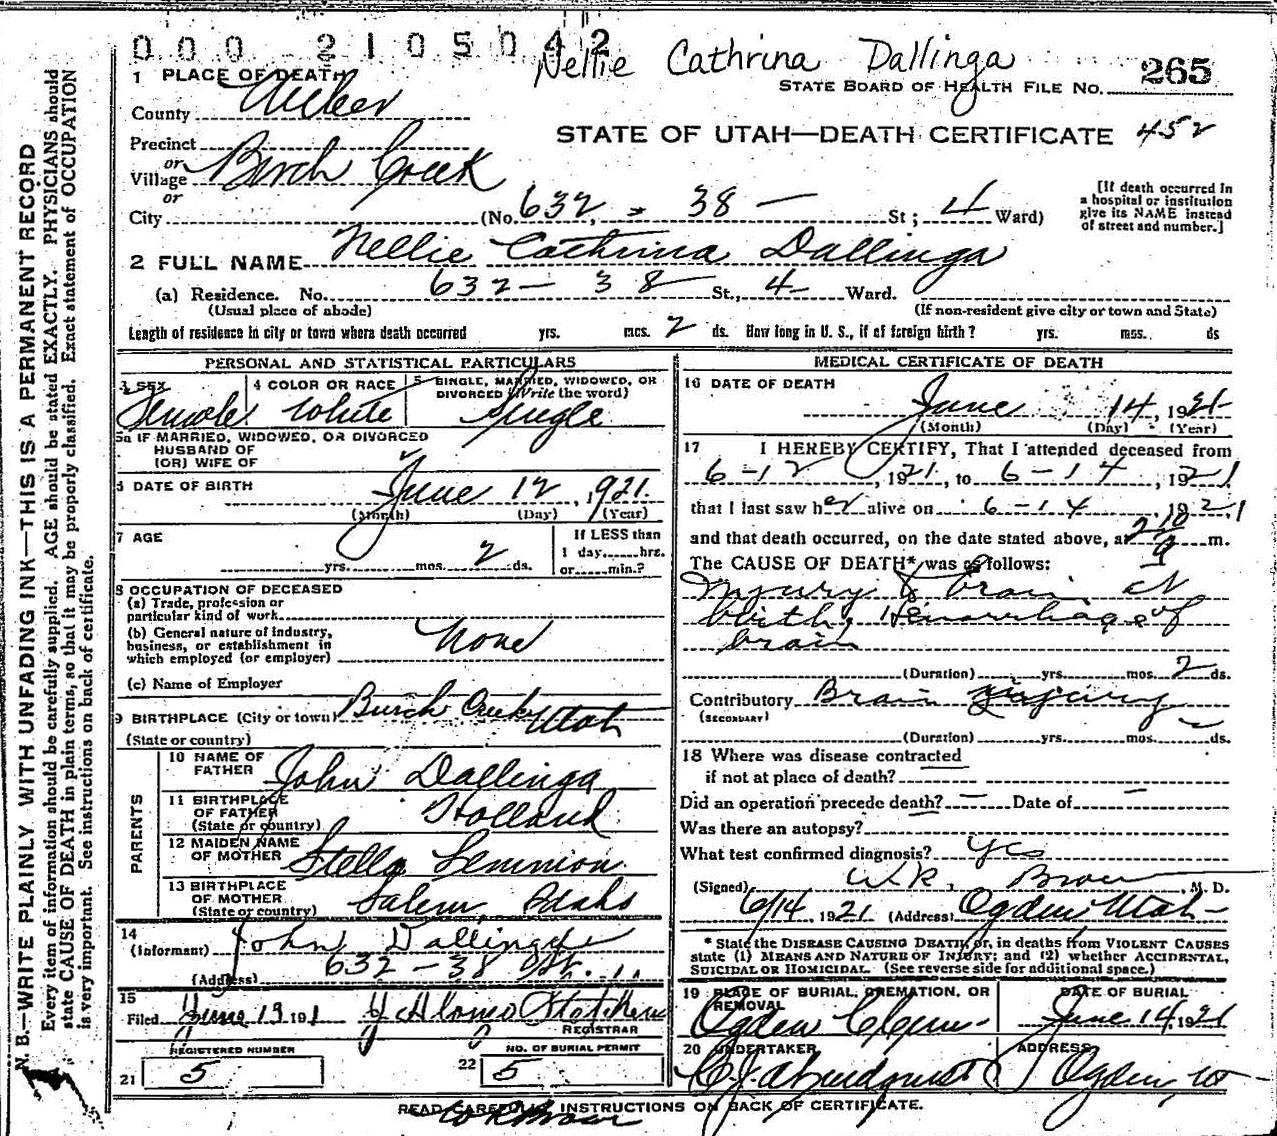 0 0 0 2 1 0 5 0 4 2
Nellie Cathrina Dallinga
265
STATE BOARD OF HEALTH FILE NO.
1 PLACE OF DEATH
County Weber
STATE OF UTAH—DEATH CERTIFICATE 452
Precinct
or
Village Burch Creek
or
City (No. 632, 38 — St; 4 Ward)
[If death occurred in
a hospital or institution
give its NAME instead
of street and number.]
2 FULL NAME Nellie Cathrina Dallinga
(a) Residence. No. 632 — 38 St., 4 Ward.
(Usual place of abode) (If non-resident give city or town and State)
Length of residence in city or town where death occurred yrs. mcs. 2 ds. How long in U. S., if of foreign birth? yrs. mos. ds
PERSONAL AND STATISTICAL PARTICULARS
3 SEX Female
4 COLOR OR RACE White
5 SINGLE, MARRIED, WIDOWED, OR
DIVORCED (Write the word)
Single
5a IF MARRIED, WIDOWED, OR DIVORCED
HUSBAND OF
(OR) WIFE OF
6 DATE OF BIRTH June 12, 1921.
(Month) (Day) (Year)
7 AGE
yrs. mos. 2 ds.
If LESS than
1 day, hrs.
or min.?
8 OCCUPATION OF DECEASED
(a) Trade, profession or
particular kind of work
(b) General nature of industry,
business, or establishment in
which employed (or employer)
None
(c) Name of Employer
9 BIRTHPLACE (City or town) Burch Creek Utah
(State or country)
PARENTS
10 NAME OF
FATHER John Dallinga
11 BIRTHPLACE
OF FATHER Holland
(State or country)
12 MAIDEN NAME
OF MOTHER Stella Lemmon
13 BIRTHPLACE
OF MOTHER Salem, Idaho
(State or country)
14
(Informant) John Dallinga
(Address) 632 — 38 St.
15
Filed June 19 191 J Alonzo
REGISTRAR
REGISTERED NUMBER
21 5
NO. OF BURIAL PERMIT
22 5
MEDICAL CERTIFICATE OF DEATH
16 DATE OF DEATH
June 14, 1921
(Month) (Day) (Year)
17 I HEREBY CERTIFY, That I attended deceased from
6-12, 1921, to 6-14, 1921
that I last saw her alive on 6-14, 1921
and that death occurred, on the date stated above, at m.
The CAUSE OF DEATH* was as follows:
Injury to brain at
birth, Hemorrhage of
brain
(Duration) yrs. mos. 2 ds.
Contributory Brain injury
(SECONDARY)
(Duration) yrs. mos. ds.
18 Where was disease contracted
if not at place of death?
Did an operation precede death? — Date of —
Was there an autopsy?
What test confirmed diagnosis? yes
(Signed) W R, Brown, M. D.
6/14, 1921 (Address) Ogden Utah —
* State the DISEASE CAUSING DEATH, or, in deaths from VIOLENT CAUSES
state (1) MEANS AND NATURE OF INJURY; and (2) whether ACCIDENTAL,
SUICIDAL OR HOMICIDAL. (See reverse side for additional space.)
19 PLACE OF BURIAL, CREMATION, OR
REMOVAL
Ogden Cem.
DATE OF BURIAL
June 14, 1921
20 UNDERTAKER
ADDRESS
Ogden, Ut
READ CAREFULLY INSTRUCTIONS ON BACK OF CERTIFICATE.
N. B.—WRITE PLAINLY WITH UNFADING INK—THIS IS A PERMANENT RECORD
Every item of information should be carefully supplied. AGE should be stated EXACTLY. PHYSICIANS should
state CAUSE OF DEATH in plain terms, so that it may be properly classified. Exact statement of OCCUPATION
is very important. See instructions on back of certificate.